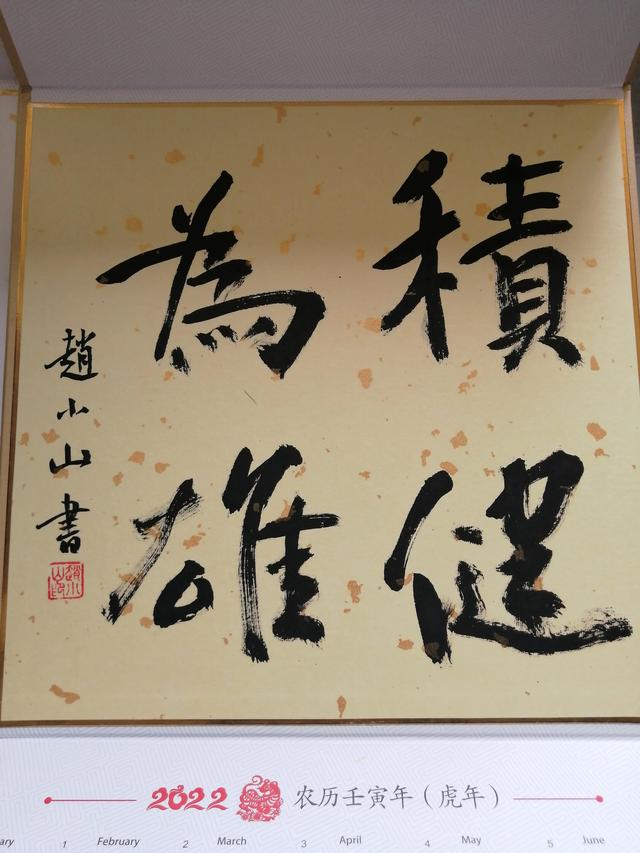 積健
為雄
趙小山書
2022 农历壬寅年（虎年）
1 February 2 March 3 April 4 May 5 June